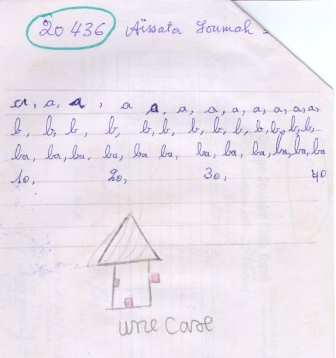 20 436 Aïssata Soumah
a, a, a, a a, a, a, a, a, a, a, a
b, b, b, b, b, b, b, b, b, b, b, b, b,
ba, ba, ba, ba, ba ba, ba, ba, ba, ba, ba, ba
10, 20, 30, 40
une case